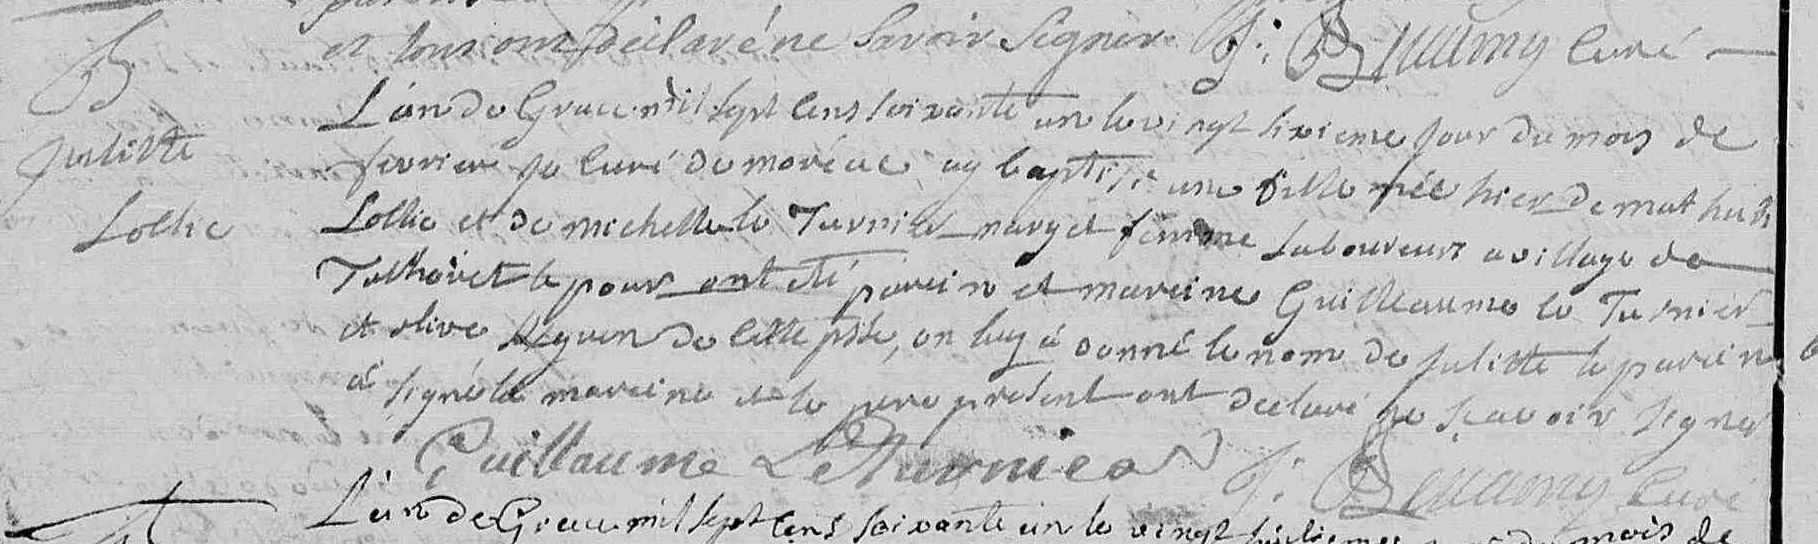 et tous ont déclaré ne Savoir Signer. Curé
B
L'an de Grace mil Sept Cens soixante un le vingt sixieme jour du mois de
Julitte
fevrier je Curé de moréac, ay baptisé une fille née hier de mathurin
Lollic
Lollic et de michelle le Turnier mary et femme Laboureurs a village de
Talhoüet le pour ont eté parein et mareine Guilleaume le Turnier
et olive Seguin de Cette psse, on luy á donné le nom de Julitte le parein
á signé la mareine et le pere present ont declaré ne sçavoir signer
Guillaume Le Turnier Curé
L'an de Grace mil sept Cens soixante un le vingt huitieme jour du mois de